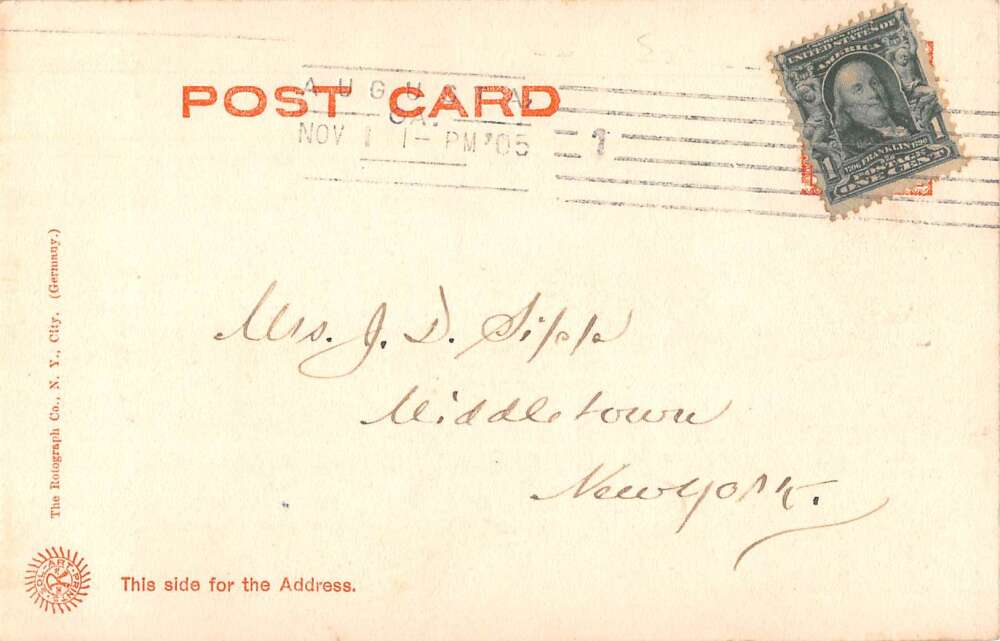 POST CARD
AUGUSTA,
GA.
NOV 1 1-PM '05
1
UNITED STATES OF
AMERICA
1706 FRANKLIN 1790
POSTAGE
1 ONE CENT 1
Mrs. J. D. Sipp
Middletown
New York.
The Rotograph Co., N. Y., City. (Germany.)
SOL-ART PRINTS
This side for the Address.